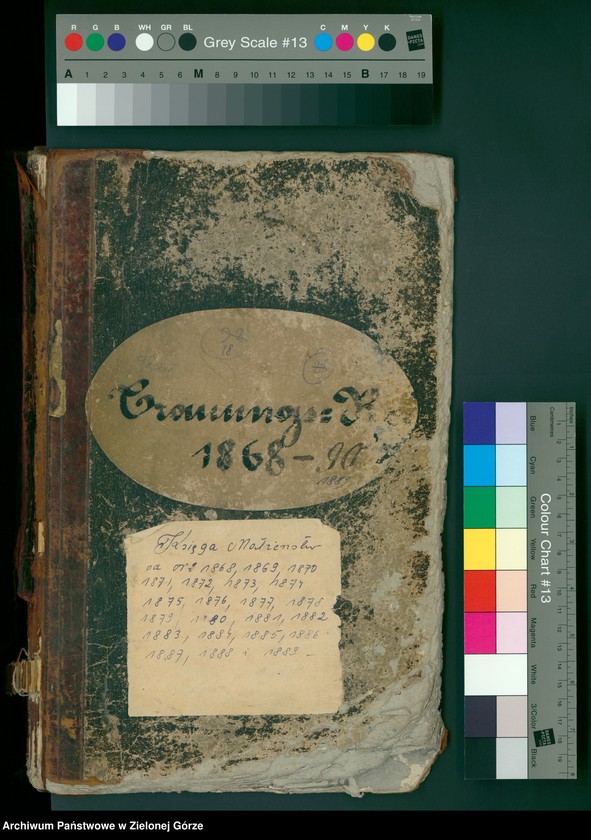 R G B WH GR BL Grey Scale #13 C M Y K
A 1 2 3 4 5 6 M 8 9 10 11 12 13 14 15 B 17 18 19
18
Trauungs=R
1868-90
1889
Księga Małżeństw
za rok 1868, 1869, 1870
1871, 1872, 1873, 1874
1875, 1876, 1877, 1878
1879, 1880, 1881, 1882
1883, 1884, 1885, 1886
1887, 1888 i 1889
Colour Chart #13
Blue Cyan Green Yellow Red Magenta White 3/Color Black
Inches
Centimetres
Archiwum Państwowe w Zielonej Górze